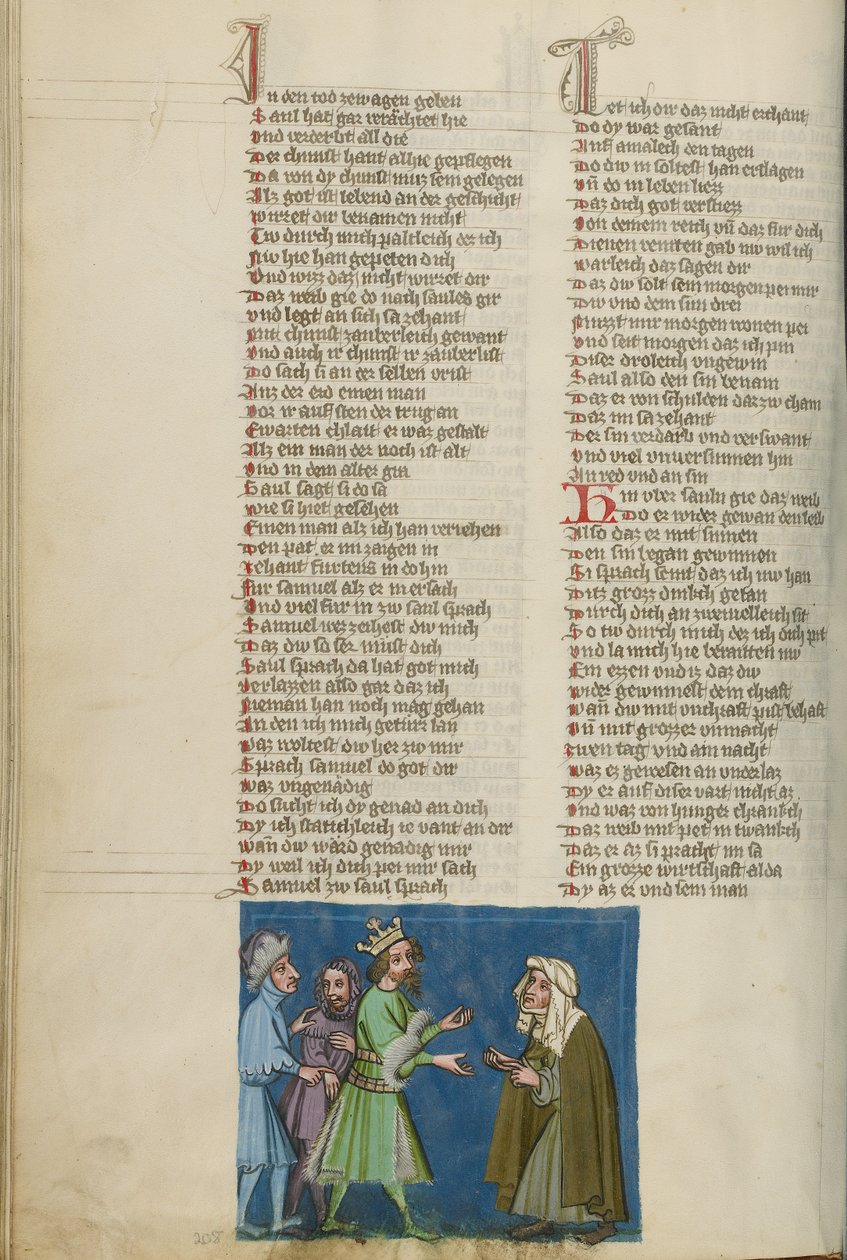 In den tod zewagen geben
Saul hat gar verächtet hie
vnd verderbt all die
Der chunst hant allhie gepflegen
Da von dy chunst muz sein gelegen
Alz got ist lebend an der geschicht
wirret dir benamen nicht
Tw durch mich paltleich dez ich
Nw hie han gepeten dich
Vnd wizz daz nicht wirret dir
Daz weib gie do nach saules gir
vnd legt an sich sa zehant
Mit chunst zauberleich gewant
Vnd auch ir chunst ir zauberlist
Do sach si an der selben vrist
Auz der erd einen man
Vor ir auf sten der trug an
Ewarten chlait er waz gestalt
Alz ein man der noch ist alt
Vnd in dem alter gra
Saul sagt si do sa
wie si hiet gesehen
Einen man alz ich han veriehen
Den pat er im zaigen in
zehant furtens in do hin
Fur samuel alz er in ersach
Vnd viel fur in zw saul sprach
Samuel wez zeihest dw mich
Daz dw so ser must dich
Saul sprach da hat got mich
verlazzen also gar daz ich
Nieman han noch mag gehan
An den ich mich getürr lan
waz woltest dw her zw mir
Sprach samuel do got dir
waz vngenädig
Do sucht ich dy genad an dich
Dy ich stätichleich ie vant an dir
wann dw wärd genädig mir
Dy weil ich dich pei mir sach
Samuel zw saul sprach
Tet ich dir daz nicht erchant
Do dy war gesant
Auf amalech den tagen
Do dw in soltest han erslagen
vn do in leben liezz
Daz dich got verstiezz
Von deinem reich vn daz fur dich
Dauiten gab nw wil ich
warleich daz sagen dir
Daz dw solt sein morgen pei mir
Dw vnd dein sun drei
Muzzt mir morgen wonen pei
vnd seit morgen daz ich pin
Diser droleich vngewin
Saul also den sin benam
Daz er von schulden dar zw cham
Daz im sa zehant
Der sin verdarb vnd verswant
Vnd viel vnuersunnen hin
An red vnd an sin
Hin vber sauln gie daz weib
Do er wider gewan den leib
Also daz er mit sinnen
Den sin began gewinnen
Si sprach seint daz ich nw han
Ditz grozz dinkch getan
Durch dich an zweiuelleich sit
So tw durch mich dez ich dich pit
vnd la mich hie beraitten nw
Ein ezzen vnd iz daz dw
wider gewinnest dein chraft
wann dw mit vnchraft pist behaft
Vn mit grozzer vnmacht
zwen tag vnd ain nacht
waz ez gewesen an vnderlaz
Dy er auf diser vart nicht az
Vnd waz von hunger chrankch
Daz weib mit pet in twankch
Daz er az si pracht im sa
Ein grozze wirtschaft alda
Dy az er vnd sein man
208